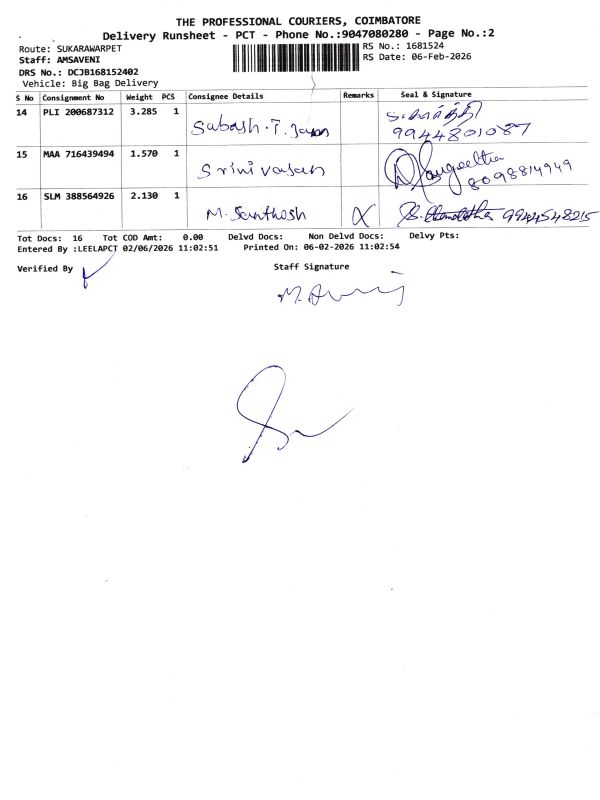 THE PROFESSIONAL COURIERS, COIMBATORE
Delivery Runsheet - PCT - Phone No.:9047080280 - Page No.:2
Route: SUKARAWARPET
RS No.: 1681524
Staff: AMSAVENI
RS Date: 06-Feb-2026
DRS No.: DCJB168152402
Vehicle: Big Bag Delivery
S No Consignment No Weight PCS Consignee Details Remarks Seal & Signature
14 PLI 200687312 3.285 1 Subash.T. 9944801087
15 MAA 716439494 1.570 1 Srinivasan Sangeetha 8098814949
16 SLM 388564926 2.130 1 M. Santhosh 9944548215
Tot Docs: 16 Tot COD Amt: 0.00 Delvd Docs: Non Delvd Docs: Delvy Pts:
Entered By :LEELAPCT 02/06/2026 11:02:51 Printed On: 06-02-2026 11:02:54
Verified By
Staff Signature